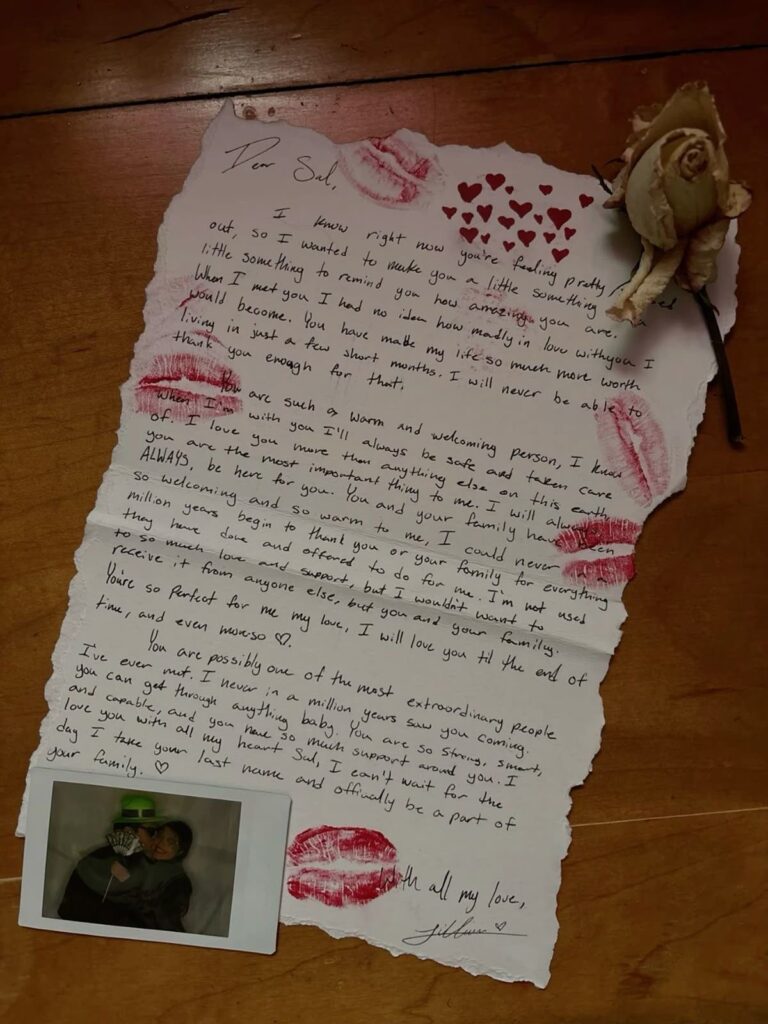 Dear Sal,
I know right now you're feeling pretty
out, so I wanted to make you a little something
little something to remind you how amazing you are.
When I met you I had no idea how madly in love with you I
would become. You have made my life so much more worth
living in just a few short months. I will never be able to
thank you enough for that.
You are such a warm and welcoming person, I know
when I'm with you I'll always be safe and taken care
of. I love you more than anything else on this earth,
you are the most important thing to me. I will always,
ALWAYS, be here for you. You and your family have been
so welcoming and so warm to me, I could never
million years begin to thank you or your family for everything
they have done and offered to do for me. I'm not used
to so much love and support, but I wouldn't want to
receive it from anyone else, but you and your family.
You're so perfect for me my love, I will love you til the end of
time, and even more so ♡.
You are possibly one of the most extraordinary people
I've ever met. I never in a million years saw you coming.
you can get through anything baby. You are so strong, smart,
and capable, and you have so much support around you. I
love you with all my heart Sal, I can't wait for the
day I take your last name and officially be a part of
your family. ♡
With all my love,